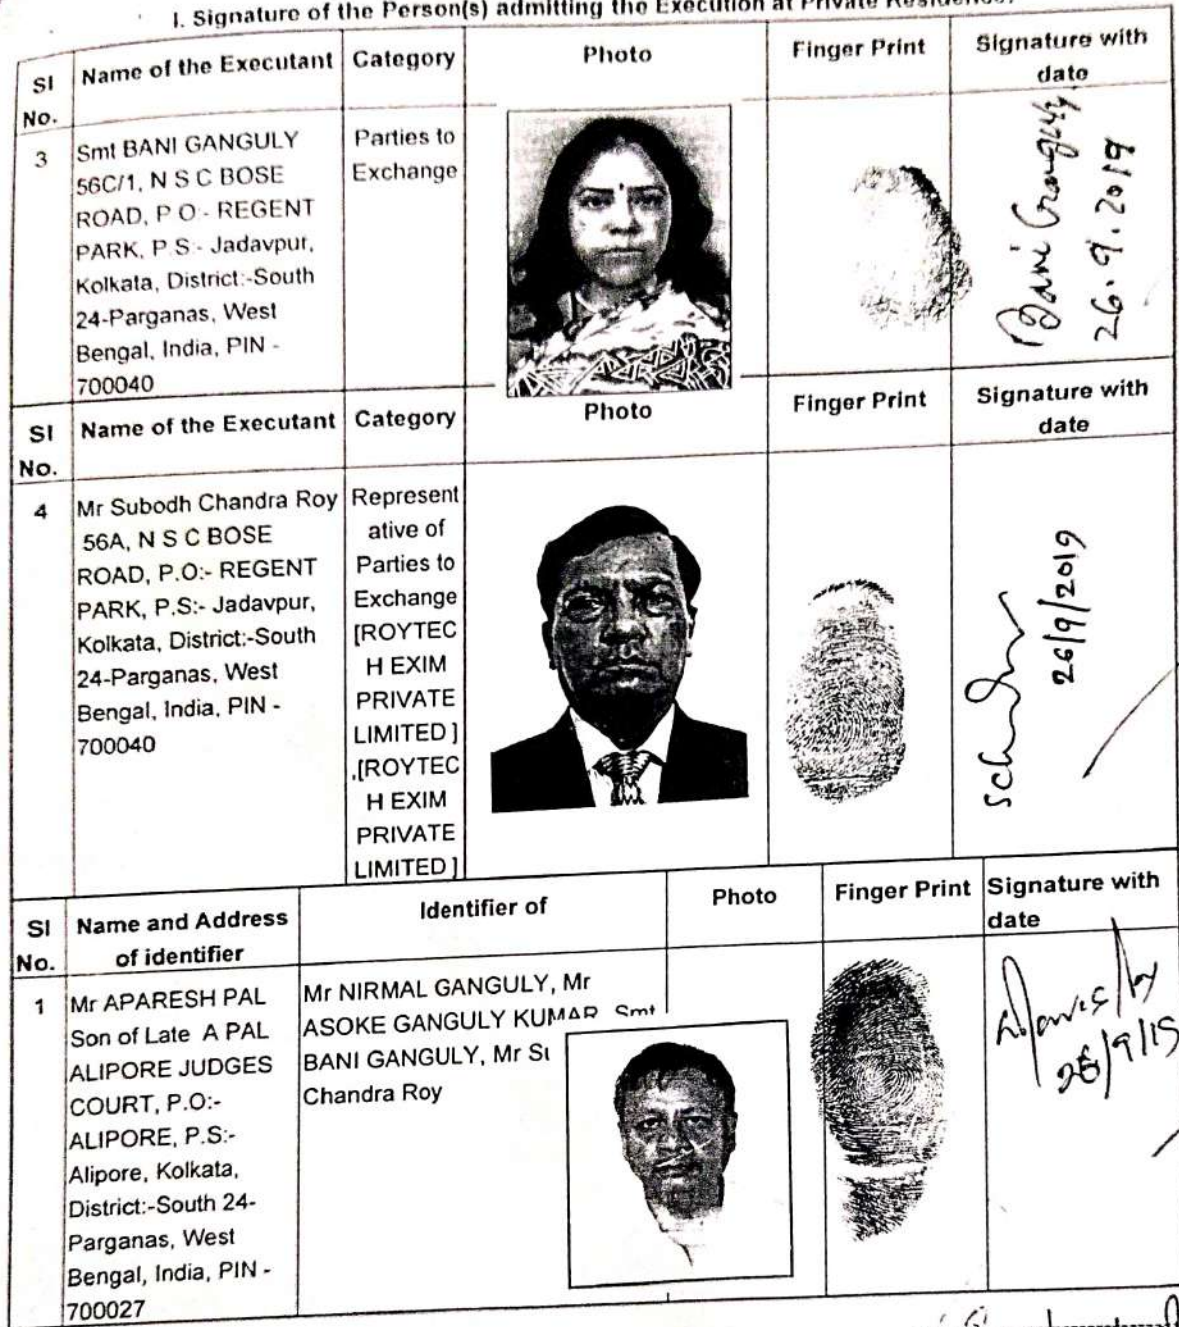 I. Signature of the Person(s) admitting the Execution at Private Residence.
Sl No.
Name of the Executant
Category
Photo
Finger Print
Signature with date
3
Smt BANI GANGULY
56C/1, N S C BOSE
ROAD, P.O:- REGENT
PARK, P.S:- Jadavpur,
Kolkata, District:-South
24-Parganas, West
Bengal, India, PIN -
700040
Parties to
Exchange
Bani Ganguly
26.9.2019
Sl No.
Name of the Executant
Category
Photo
Finger Print
Signature with date
4
Mr Subodh Chandra Roy
56A, N S C BOSE
ROAD, P.O:- REGENT
PARK, P.S:- Jadavpur,
Kolkata, District:-South
24-Parganas, West
Bengal, India, PIN -
700040
Represent
ative of
Parties to
Exchange
[ROYTEC
H EXIM
PRIVATE
LIMITED ]
,[ROYTEC
H EXIM
PRIVATE
LIMITED ]
26/9/2019
Sl No.
Name and Address
of identifier
Identifier of
Photo
Finger Print
Signature with
date
1
Mr APARESH PAL
Son of Late A PAL
ALIPORE JUDGES
COURT, P.O:-
ALIPORE, P.S:-
Alipore, Kolkata,
District:-South 24-
Parganas, West
Bengal, India, PIN -
700027
Mr NIRMAL GANGULY, Mr
ASOKE GANGULY KUMAR, Smt
BANI GANGULY, Mr Su
Chandra Roy
26/9/19